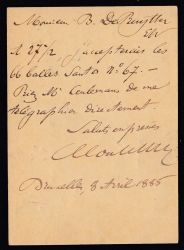 Monsieur B. De Ruytter
à 27½ j'accepterais les
66 balles Santos No 67. —
Priez Mr Ceulemans de me
télégraphier directement.
Salut empressé
Bruxelles, 8 Avril 1886